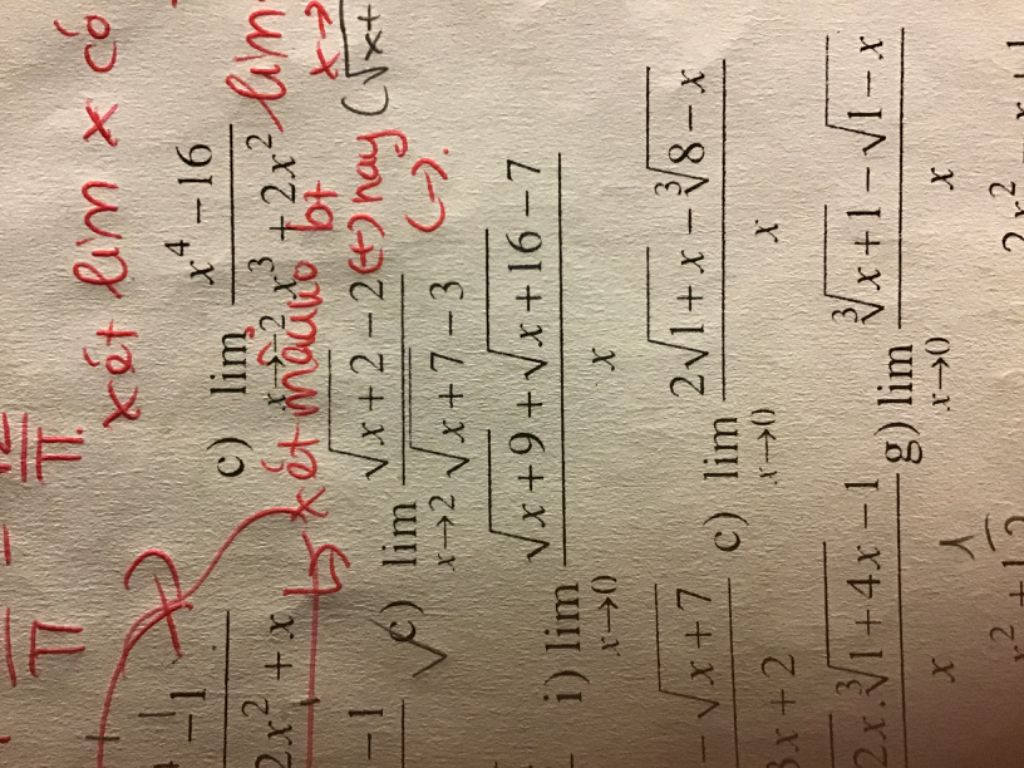 xét lim x có
c) lim_{x→-2} \frac{x^4 - 16}{x^3 + 2x^2} lim
2x^2 + x
xét mẫu bt (+) hay (-).
c) lim_{x→2} \frac{\sqrt{x+2} - 2}{\sqrt{x+7} - 3}
i) lim_{x→0} \frac{\sqrt{x+9} + \sqrt{x+16} - 7}{x}
\frac{- \sqrt{x+7}}{3x+2} c) lim_{x→0} \frac{2\sqrt{1+x} - \sqrt[3]{8-x}}{x}
\frac{2x.\sqrt[3]{1+4x} - 1}{x} g) lim_{x→0} \frac{\sqrt[3]{x+1} - \sqrt{1-x}}{x}